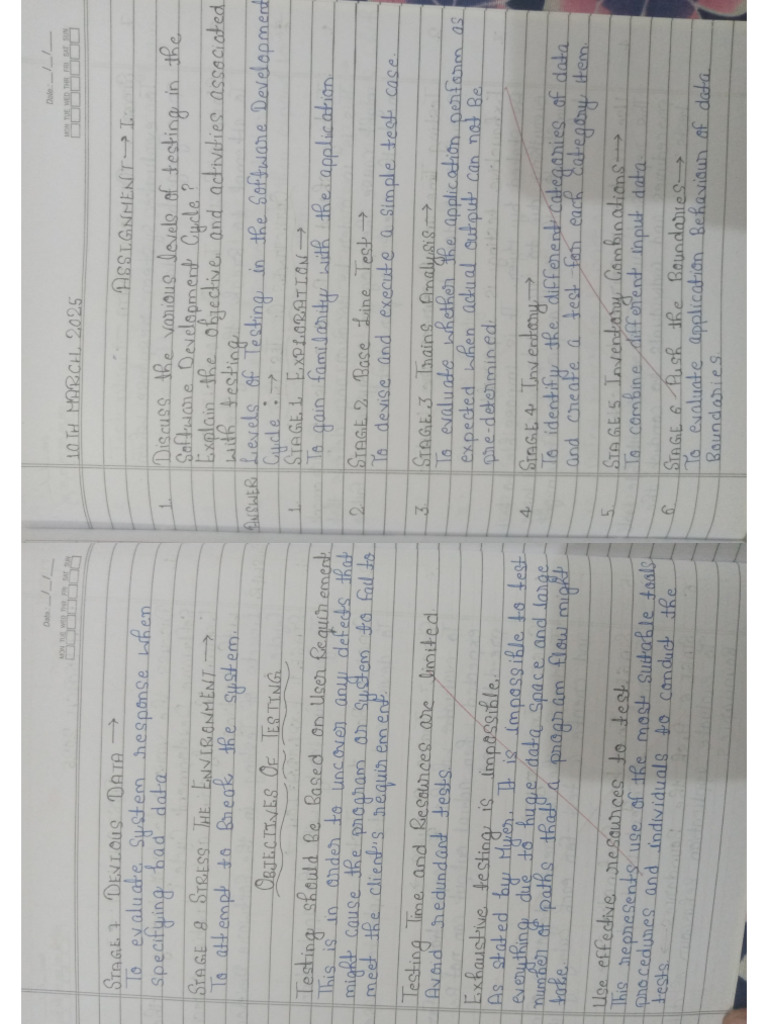 Date: __/__/__
MON TUE WED THU FRI SAT SUN
10TH MARCH, 2025
ASSIGNMENT → I.
1. Discuss the various levels of testing in the
Software Development Cycle?
Explain the objective and activities associated
with testing.
ANSWER Levels of Testing in the Software Development
Cycle :→
1. STAGE 1 EXPLORATION →
To gain familarity with the application
2 STAGE 2 Base Line Test →
To devise and execute a simple test case.
3 STAGE 3 Trains Analysis →
To evaluate whether the application perform as
expected when actual output can not be
pre-determined.
4 STAGE 4 Inventory →
To identify the different categories of data
and create a test for each category item.
5 STAGE 5 Inventory Combinations →
To combine different input data
6 STAGE 6 Push the Boundaries →
To evaluate application Behaviour of data
Boundaries
Date: __/__/__
MON TUE WED THU FRI SAT SUN
STAGE 7 DEVIOUS DATA →
To evaluate system response when
specifying had data
STAGE 8 STRESS THE ENVIRONMENT →
To attempt to Break the system.
OBJECTIVES OF TESTING
Testing should be Based on User Requirement
This is in order to uncover any defects that
might cause the program or system to fail to
meet the client's requirement.
Testing Time and Resources are limited
Avoid redundant tests
Exhaustive testing is impossible.
As stated by Myer. It is impossible to test
everything due to huge data space and large
number of paths that a program flow might
take.
Use effective resources to test.
This represents use of the most suitable tools
procedures and individuals to conduct the
tests.